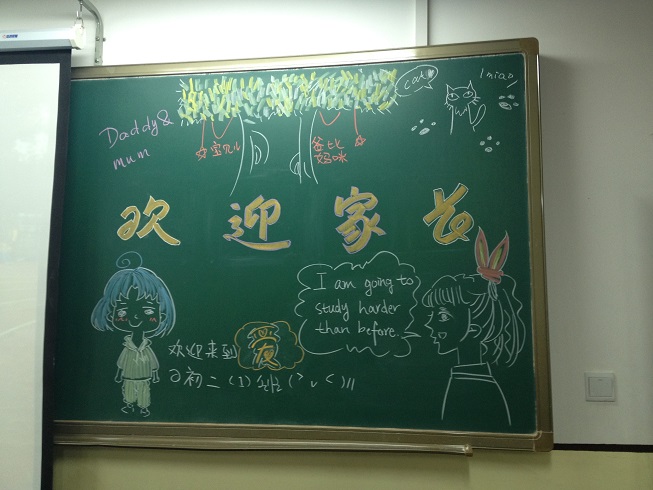 Daddy&
mum
宝贝儿
爸比
妈咪
cat
miao
欢迎家长
I am going to
study harder
than before.
欢迎来到
爱
の初二(1)